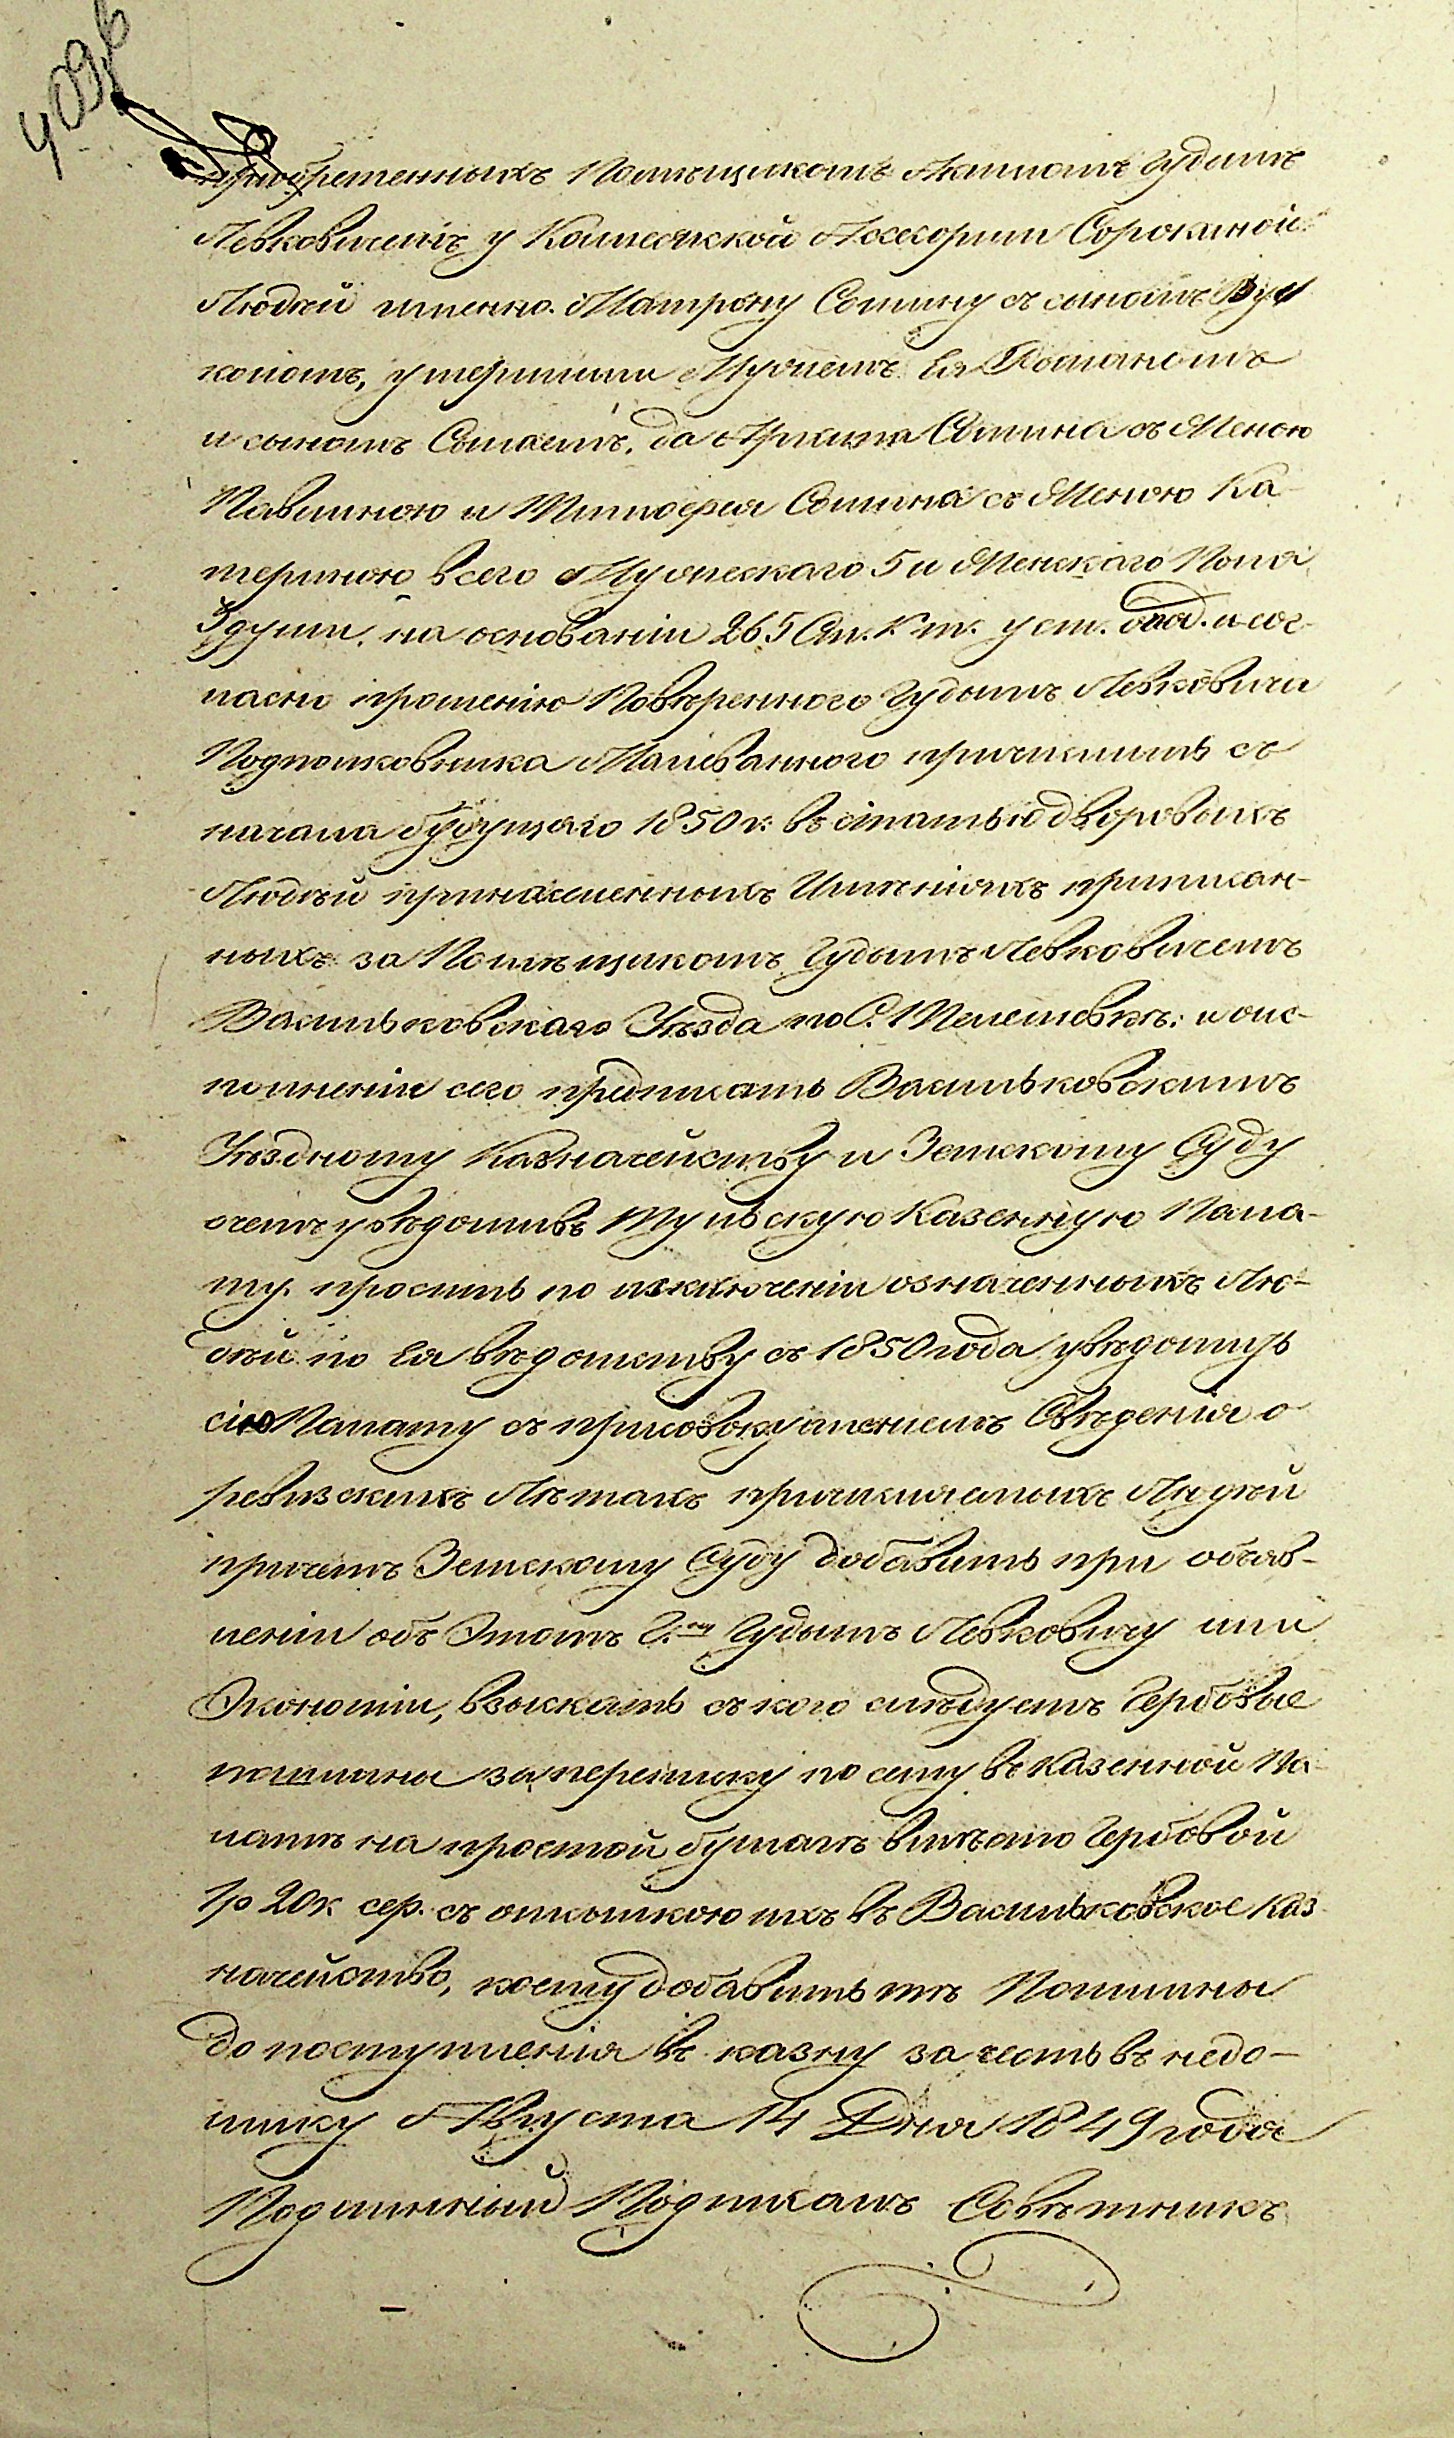 409б
приобретенныхъ Помѣщикомъ Акимомъ Гудимъ
Левковичемъ у Коллежской Ассесорши Сорокиной
Людей именно. Матрону Сомину съ сыномъ
умершими Мужемъ Ея Романомъ
и сыномъ да Архипа Сомина съ Женою
Павлиною и Тимофея Сомина съ Женою Ка-
териною всего Мужескаго 5 и Женскаго Пола
3 души, на основаніи 265 Ст. уст. о под. и сог-
ласно прошенію Повѣренного Гудымъ Левковича
Подполковника Малеванного причислить съ
начала будущаго 1850 г. въ статью дворовыхъ
Людей приналеженныхъ Имѣніямъ приписан-
ныхъ за Помѣщикомъ Гудымъ Левковичемъ
Васильковского Уѣзда по С. Пелешовкѣ: и о ис-
полненіи сего предписать Васильковскимъ
Уѣздному Казначейству и Земскому Суду
о чемъ увѣдомивъ Тульскую Казенную Пала-
ту. просить по изключеніи означенныхъ Лю-
дей по Ея вѣдомству съ 1850 года увѣдомить
сію Палату съ присовокупленіемъ Свѣденія о
ревизскихъ Лѣтахъ причисляемыхъ Людей
причемъ Земскому Суду добавить при объяв-
леніи объ Этомъ Г.ну Гудымъ Левковичу или
Экономіи, взыскать съ кого слѣдуетъ Гербовые
пошлины за переписку по сему въ Казенной Па-
латѣ на простой бумагѣ вмѣсто Гербовой
1 р 20 к сер. съ отсылкою ихъ въ Васильковское Каз
начейство, коему добавить тѣ Пошлины
до поступленія въ казну зачесть въ недо-
имку Августа 14 Дня 1849 года
Подлинный Подписалъ Совѣтникъ